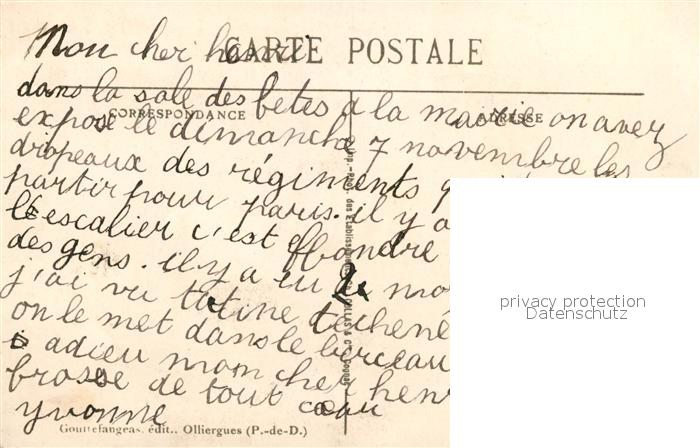 CARTE POSTALE
CORRESPONDANCE
ADRESSE
Mon cher henri
dans la sale des fetes a la mairie on avez
expose le dimanche 7 novembre les
dropeaux des régiments
partir pour paris. il y a
l'escalier c'est effondre
des gens. il y a eu mo
j'ai vu tatine
on le met dans le berceau
adieu mon cher hen
brosse de tout cœur
yvonne
Gouttefangeas, édit., Olliergues (P.-de-D.)
privacy protection
Datenschutz